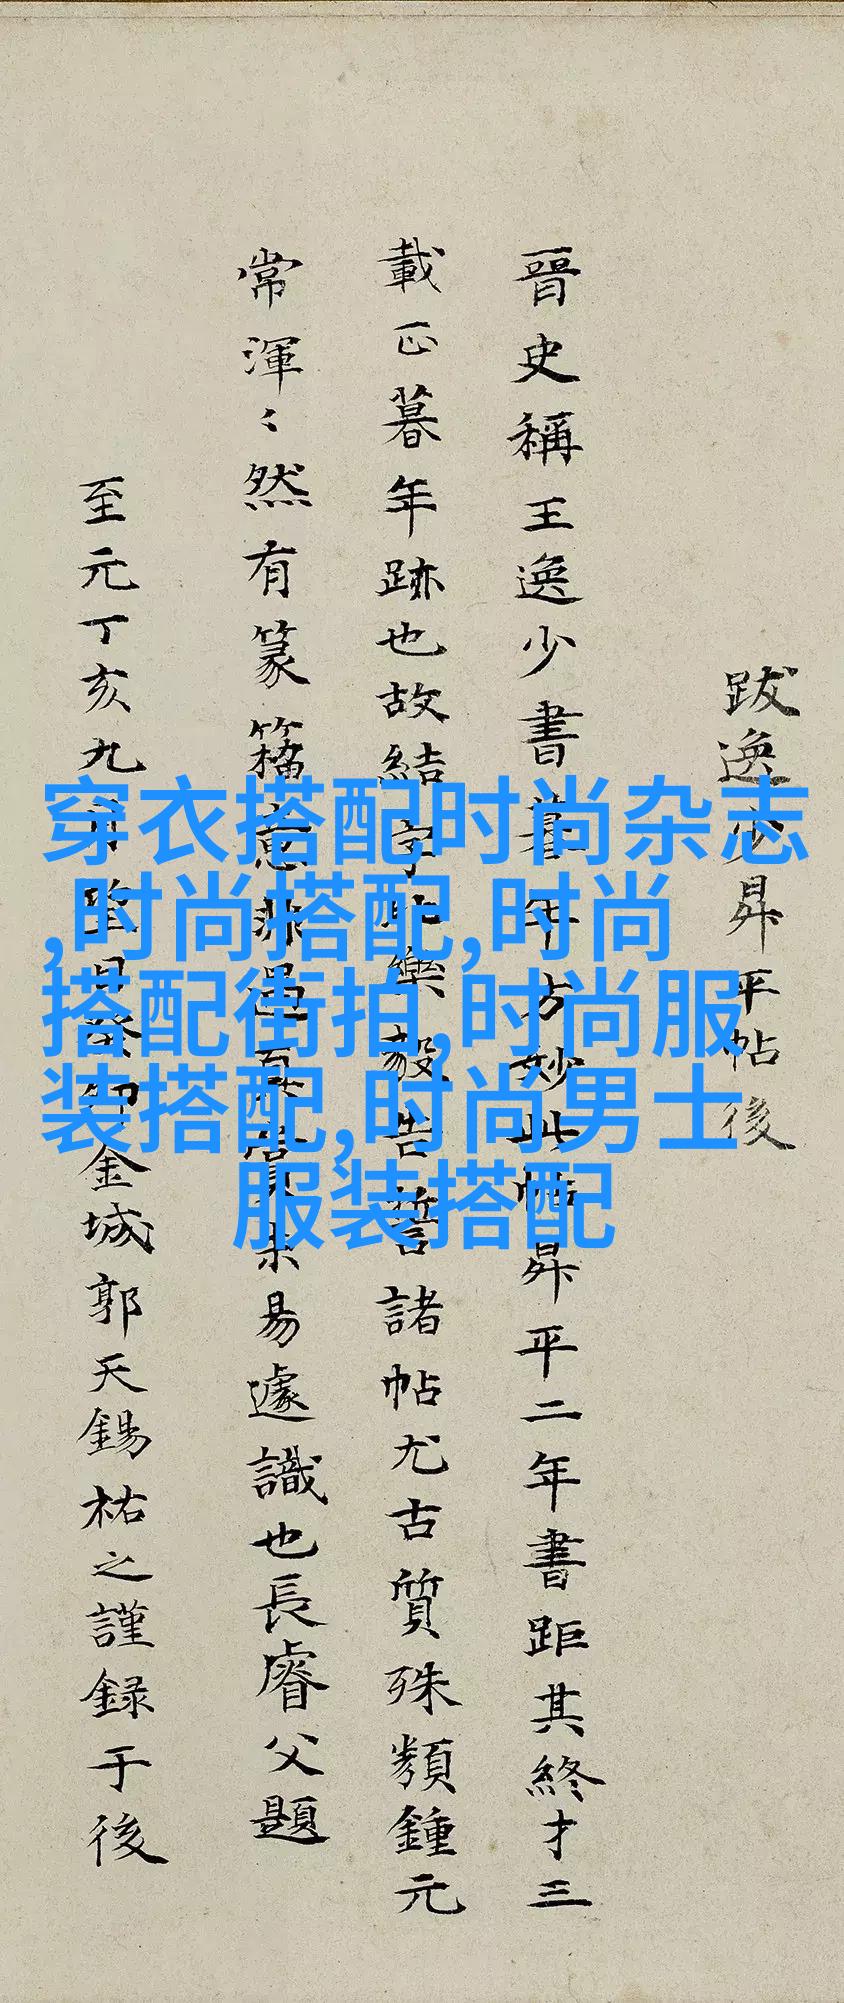 跋逸少昇平帖後
晉史稱王逸少書暮年方妙此帖昇平二年書距其終才三
載正暮年跡也故結字比樂毅告誓諸帖尤古質殊類鍾元
常渾〻然有篆籀意非遇真賞未易遽識也長睿父題
至元丁亥九月日金城郭天錫祐之謹録于後
穿衣搭配时尚杂志
,时尚搭配,时尚
搭配街拍,时尚服
装搭配,时尚男士
服装搭配